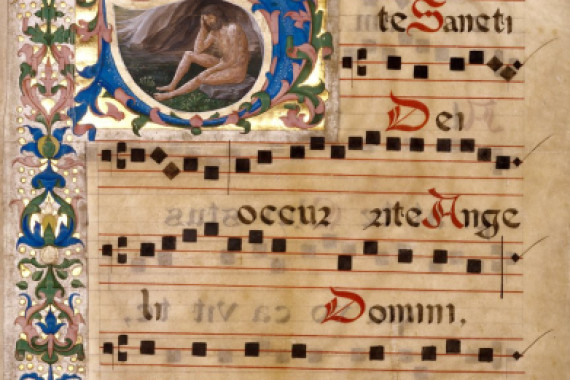 te Sancti
Dei
occur rite Ange
li Domini.